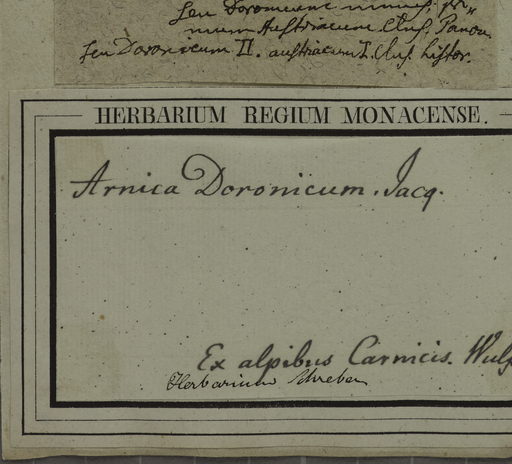 seu Doronicum minus, pri„
mum Austriacum Clus. Panon.
seu Doronicum II. austriacum I. Clus. histor.
HERBARIUM REGIUM MONACENSE.
Arnica Doronicum. Jacq.
Ex alpibus Carnicis. Wulf
Herbarium Schreber